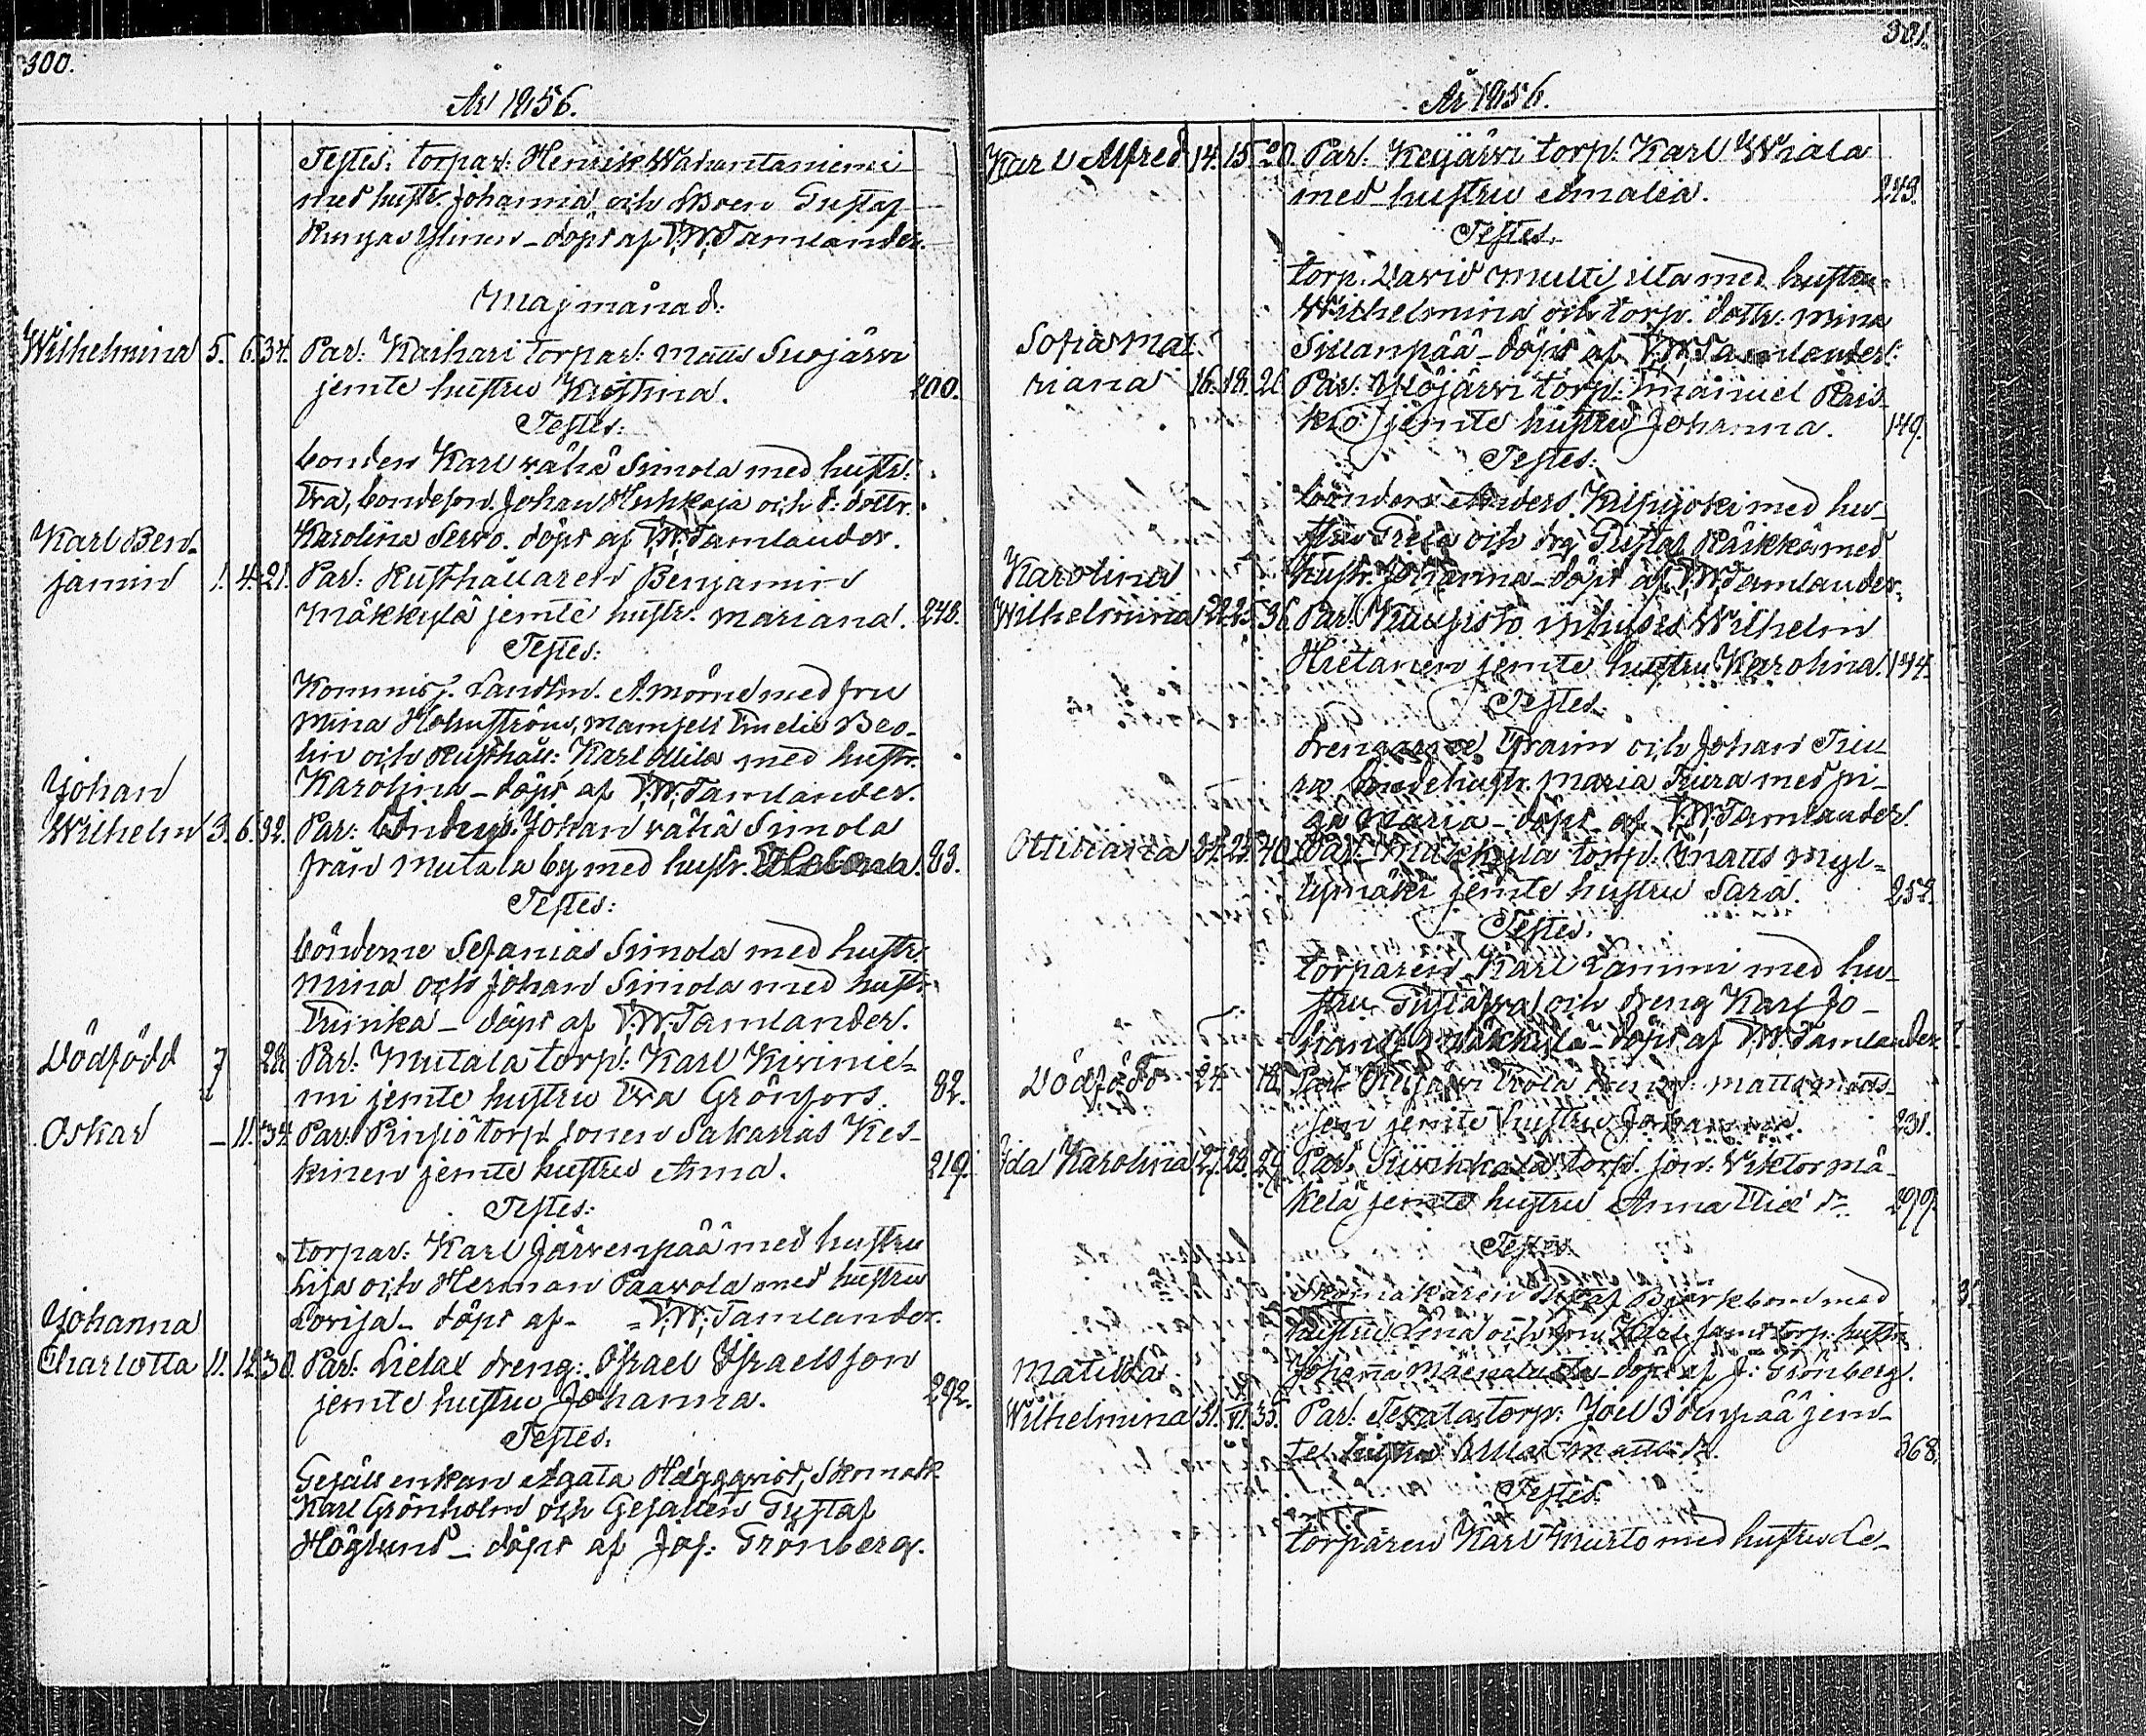 300.
År 1856.
Testes: torpar: Henrik Wahantaniemi
med hustr. Johanna och Boen Gustaf
Ylinen – döpt af W. Tamlander.
Maj månad:
Wilhelmina 5. 6. 34. Par: Kaihari torpar: Matts Suojärvi
jemte hustru Kristina. 200.
Testes:
bonden Karl vähä Simola med hustr:
Eva, bondeson. Johan Huhkaja och b: dottr.
Karolina Servo. döpt af W. Tamlander.
Karl Ben-
jamin 1. 4. 21. Par: Rusthållaren Benjamin
Mäkkylä jemte hustr. Mariana. 248.
Testes:
Kommiss. Landtm. A. Mörne med fru
Mina Holmström, mamsell Emelie Beo-
lin och Rusthåll: Karl Alila med hustr.
Karolina – döpt af W. Tamlander.
Johan
Wilhelm 3. 6. 32. Par: Johan vähä Simola
från Mutala by med hustr. 83.
Testes:
bönderne Sefanias Simola med hustr.
Mina och Johan Simola med hustr.
– döpt af W. Tamlander.
Dödfödd 7 28. Par: Mutala torp: Karl Kivinie-
mi jemte hustru Eva Grönfors. 82.
Oskar – 11. 34. Par: Pinsiö torp. sonen Sakarias Kes-
kinen jemte hustru Anna. 219.
Testes:
torpar: Karl Järvenpää med hustru
Lisa och Herman Paavola med hustru
Lovisa – döpt af – W. Tamlander.
Johanna
Charlotta 11. 12. 30. Par: Lielax dreng: Israel Israelsson
jemte hustru Johanna. 292.
Testes.
Gesäll enkan Agata Häggqvist, Skomak.
Karl Grönholm och Gesällen Gustaf
Höglund – döpt af Jos: Grönberg.
301.
År 1856.
Karl Alfred 14. 15. 20. Par: Keijärvi torp: Karl Wiala
med hustru Amalia. 243.
Testes.
torp. David Multisilta med hustru
Wilhelmina och torp. dottr. Mina
Sillanpää – döpt af W. Tamlander.
Sofia Ma-
riana 16. 18. 26. Par: Ylöjärvi torp: Emanuel Rais-
kio jemte hustru Johanna. 149.
Testes:
bönderne Anders Kilpijoki med hu-
stru Greta och drg Gustaf Räikkä med
hustr. Johanna – döpt af W. Tamlander.
Karolina
Wilhelmina 22. 25. 36. Par: Kaupisto inhyses Wilhelm
Hietanen jemte hustru Karolina. 144.
Testes.
och Johan Tiu-
ra bondehustr. Maria Tiura med pi-
ga Maria – döpt af W. Tamlander.
25. 40. Par: Mäkkylä torp: Matts Myl-
lymäki jemte hustru Sara. 252.
Testes.
torparen Karl Lammi med hu-
stru Gustafva och dreng Karl Jo-
hansson Mäkkylä – döpt af W. Tamlander.
Dödfödd 24. 18. Par: Matts Matts-
son jemte hustru Johanna. 231.
Ida Karolina 27. 28. 29. Par: Siivikkala torp. son: Viktor Mä-
kelä jemte hustru Anna 299.
Testes.
Skomakaren Gustaf Björkbom med
hustru Lina och
Johanna – döpt af J: Grönberg.
Matilda
Wilhelmina 31. VI. 35. Par: torp: Joel jem-
te hustru 368.
Testes.
torparen Karl Murto med hustru Le-